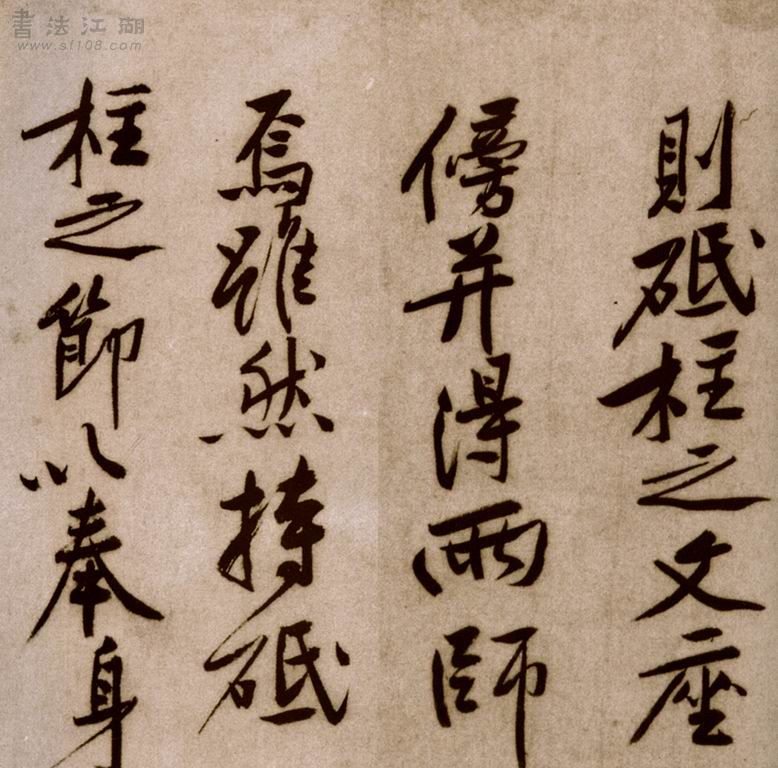 書法江湖
www.sf108.com
則砥柱之文座
傍并得兩師
焉雖然持砥
柱之節以奉身